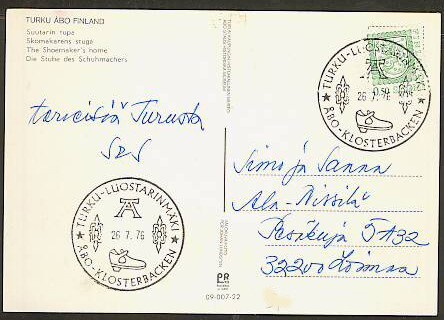 TURKU ÅBO FINLAND
Suutarin tupa
Skomakarens stuga
The Shoemaker's home
Die Stube des Schuhmachers
Turusta
TURKU-LUOSTARINMÄKI
0,50
26.7.76
ÅBO-KLOSTERBACKEN
Simo ja Sanna
Ala-Nissilä
5 A 32
32200 Loimaa
TURKU-LUOSTARINMÄKI
26.7.76
ÅBO-KLOSTERBACKEN
PR
09-007-22